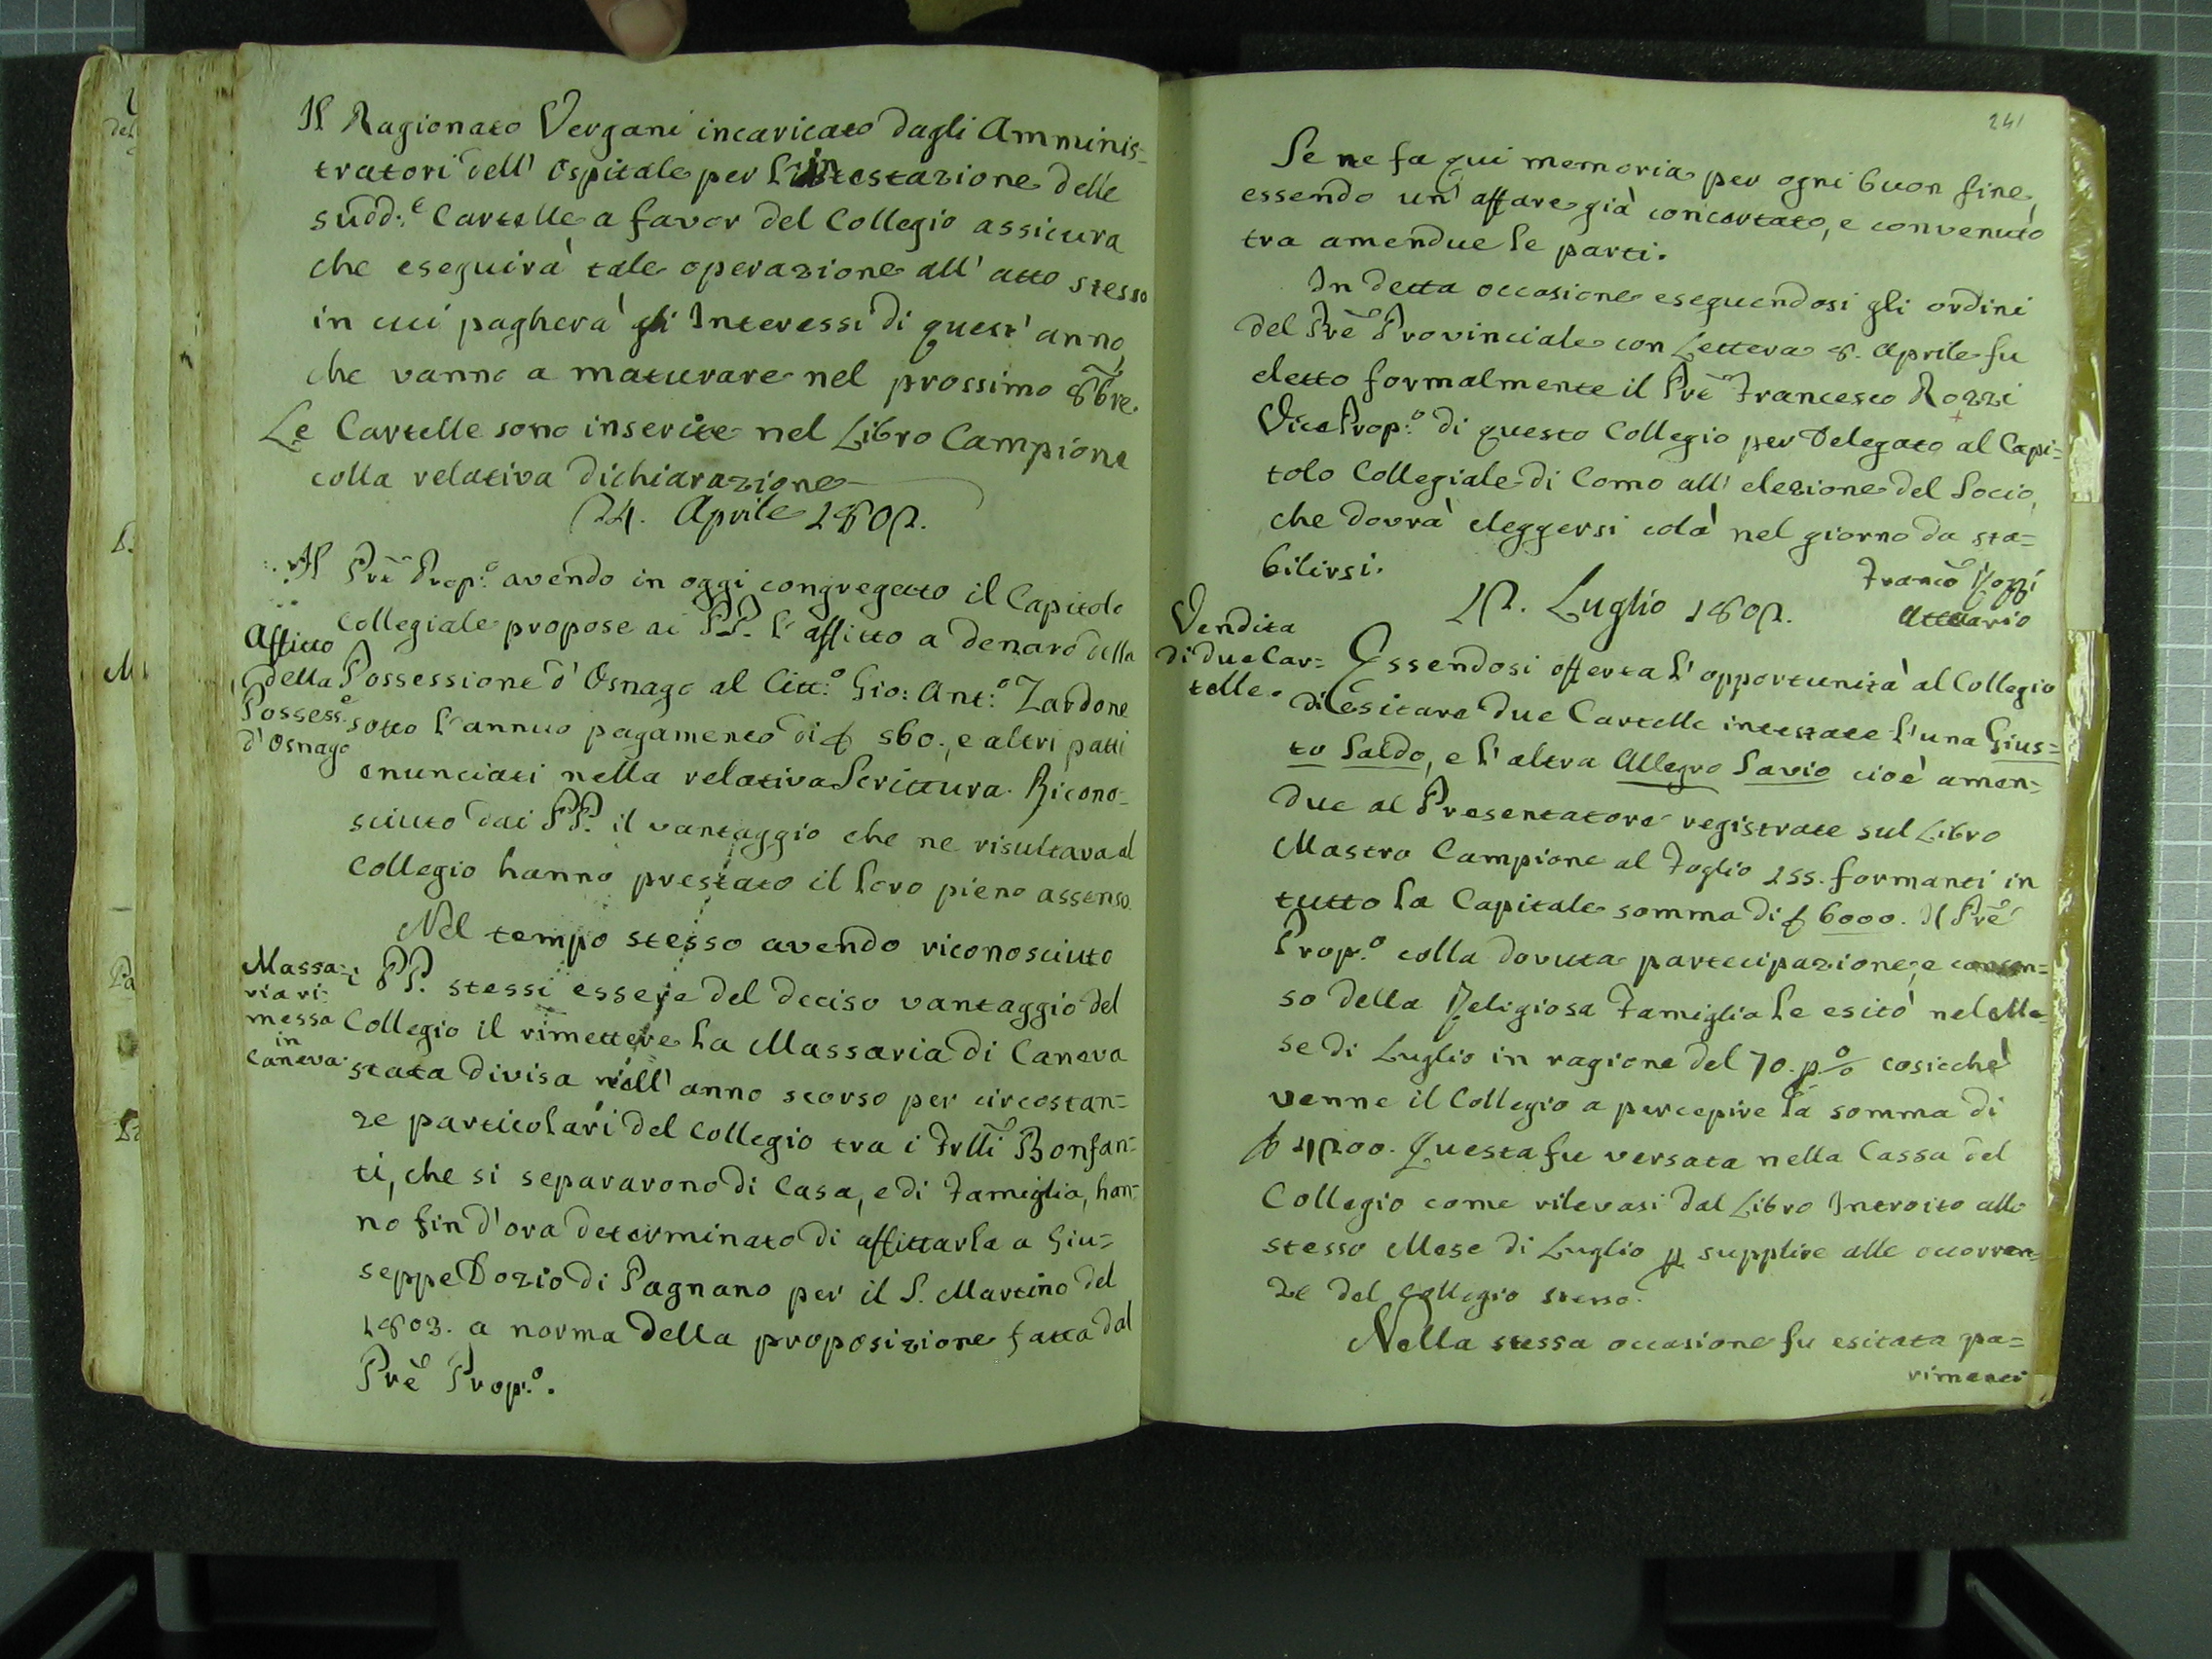 Il Ragionato Vergani incaricato dagli Amminis=
tratori dell' Ospitale per l'intestazione delle
sudd:e Cartelle a favor del Collegio assicura
che eseguirà tale operazione all' atto stesso
in cui pagherà gli Interessi di quest' anno,
che vanno a maturare nel prossimo 8bre.
Le Cartelle sono inserite nel Libro Campione
colla relativa dichiarazione
24. Aprile 1802.
Il Prē Prop:o avendo in oggi congregato il Capitolo
Collegiale propose ai PP. l' affitto a denaro della
Affitto
della
Possess:e
d'Osnago
Possessione d' Osnago al Citt:o Gio: Ant:o Zardone
sotto l'annuo pagamento di £ 560., e altri patti
enunciati nella relativa Scrittura. Ricono=
sciuto dai PP. il vantaggio che ne risultava al
Collegio hanno prestato il loro pieno assenso.
Nel tempo stesso avendo riconosciuto
Massa=
ria ri=
messa
in
Caneva.
i PP. stessi essere del deciso vantaggio del
Collegio il rimettere la Massaria di Caneva
stata divisa nell' anno scorso per circostan=
ze particolari del Collegio tra i Frlli Bonfan=
ti, che si separarono di Casa, e di Famiglia, han=
no fin d'ora determinato di affittarla a Giu=
seppe Dozio di Pagnano per il S. Martino del
1803. a norma della proposizione fatta dal
Prē Prop:o.
241
Se ne fa qui memoria per ogni buon fine,
essendo un' affare già concertato, e convenuto
tra amendue le parti.
In detta occasione eseguendosi gli ordini
del Prē Provinciale con Lettera 8. Aprile fu
eletto formalmente il Prē Francesco Rozzi
Vice Prop:o di questo Collegio per Delegato al Capi=
tolo Collegiale di Como all' elezione del Socio,
che dovrà eleggersi colà nel giorno da sta=
bilirsi.
Franco Rozzi
Attuario
12. Luglio 1802.
Vendita
di due Car=
telle.
Essendosi offerta l' opportunità al Collegio
di esitare due Cartelle intestate l'una Gius=
to Saldo, e l' altra Allegro Savio cioè amen=
due al Presentatore registrate sul Libro
Mastro Campione al Foglio 255. formanti in
tutto la Capitale somma di £ 6000. Il Prē
Prop:o colla dovuta partecipazione, e consen=
so della Religiosa Famiglia le esitò nel Me=
se di Luglio in ragione del 70. p% cosicchè
venne il Collegio a percepire la somma di
£ 4200. Questa fu versata nella Cassa del
Collegio come rilevasi dal Libro Introito allo
stesso Mese di Luglio p supplire alle occorren=
ze del Collegio stesso.
Nella stessa occasione fu esitata pa=
rimenti